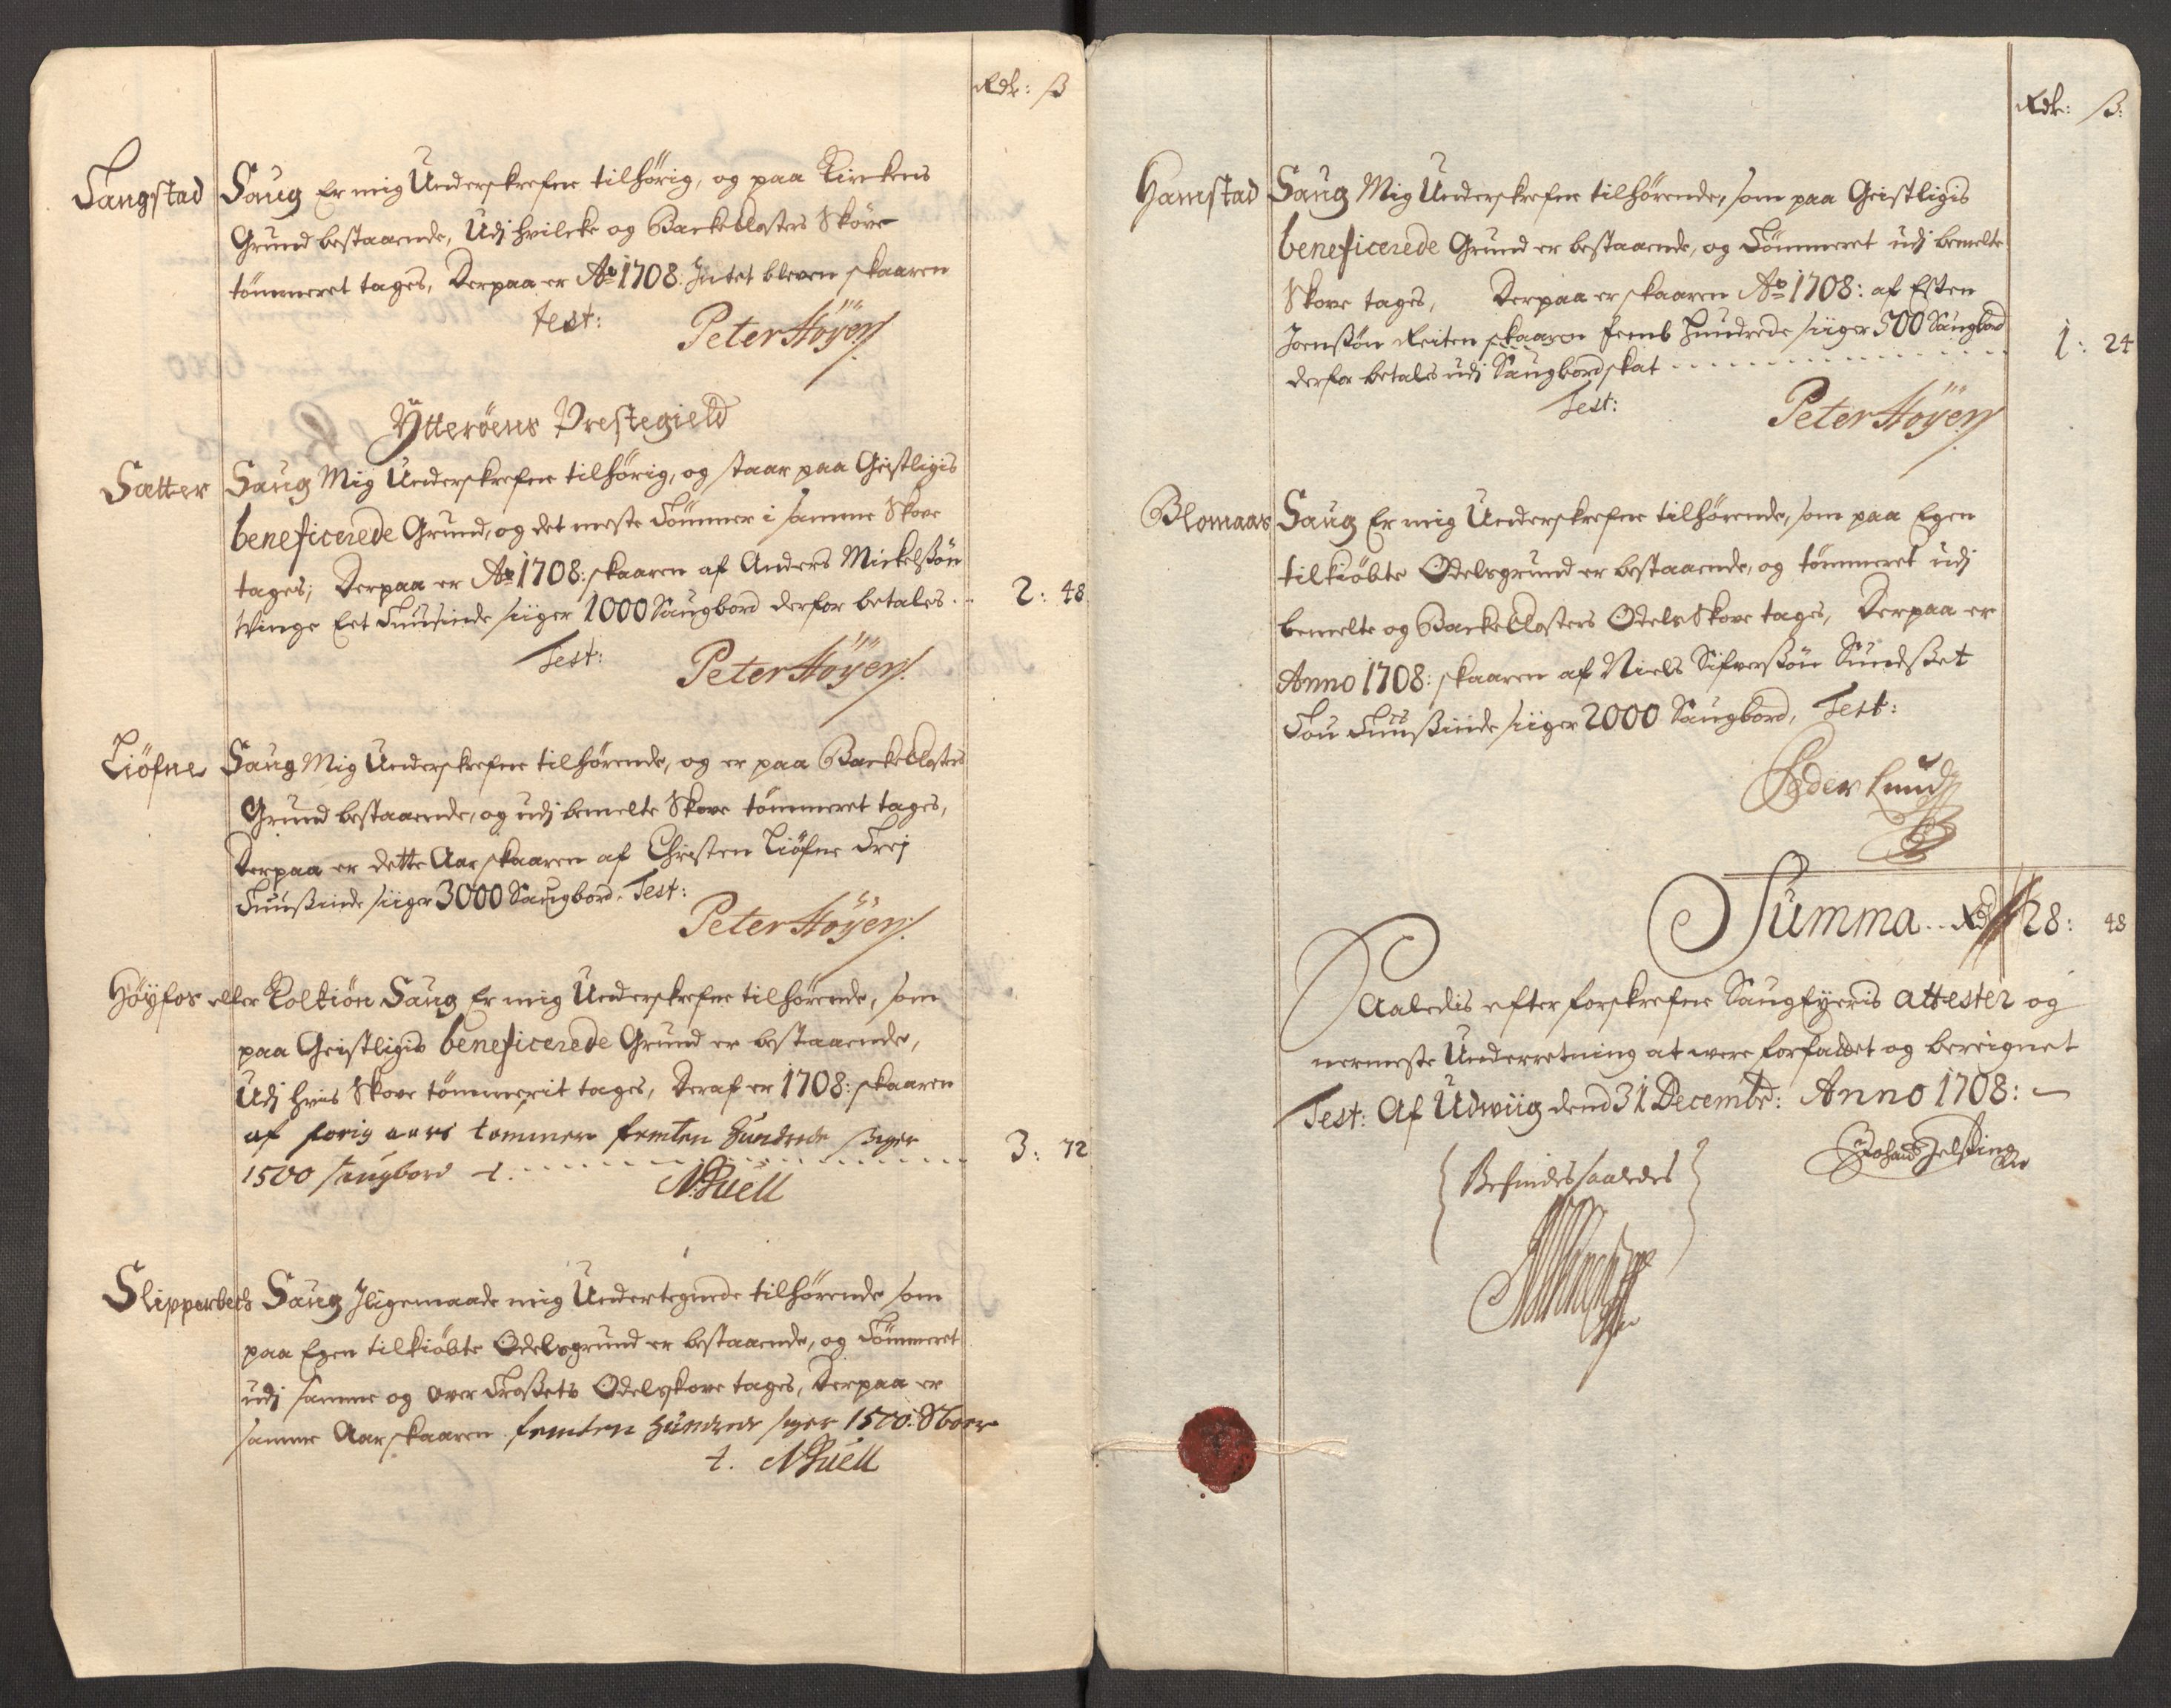 Rdr: ß
Tangstad Saug Er mig Underskrefne tilhørig, og paa Kirckens
Grund bestaaende, Udj hvilcke og Backe Closters Skove
tømmeret tages, Derpaa er Ao 1708. Intet bleven skaaren
Test: Peter Høyer
Ytterøens Prestegield
Sætter Saug Mig Underskrefne tilhørig, og staar paa Geistligis
beneficerede Grund, og det meste Tømmer i samme Skove
tages; Derpaa er Ao 1708: skaaren af Anders Mickelssøn
Winge Eet Tuusinde siiger 1000 Saugbord derfor betales . . 2: 48
Test: Peter Høyer
Liøfne Saug Mig Underskrefne tilhørende, og er paa Backe Closters
Grund bestaaende, og udj bemelte Skove tømmeret tages,
Derpaa er dette Aar skaaren af Christen Liøfne Trej
Tuusinde siiger 3000 Saugbord. Test:
Peter Høyer
Høyfos eller Kolkiøn Saug Er mig Underskrefne tilhørende, som
paa Geistligis beneficerede Grund er bestaaende,
Udj hvis Skove tømmerit tages, Deraf er 1708: skaaren
af forig aars tømmer femten Hundrede siger
1500 saugbord t. . . . . 3: 72
Slipperbech Saug Iligemaade mig Undertegnede tilhørende som
paa Egen tilkiøbte Odelsgrund er bestaaende, og Tømmeret
udj samme og over Troßets Odelskove tages, Derpaa er
samme Aar skaaren femten Hundrede siger 1500: Sbord
Rdr: ß:
Hamstad Saug Mig Underskrefne tilhørende, som paa Geistligis
beneficerede Grund er bestaaende, og Tømmeret udj bemelte
Skove tages, Derpaa er skaaren Ao 1708: af Esten
Joenssøn Reiten skaaren femb Hundrede siiger 500 Saugbord
derfor betales udj Saugbordskat . . . . . 1: 24
Test: Peter Høyer
Blomaas Saug Er mig Underskrefne tilhørende, som paa Egen
tilkiøbte Odelsgrund er bestaaende, og tømmeret udj
bemelte og Backe Closters Odels Skove tages, Derpaa er
Anno 1708: skaaren af Niels Sifverssøn Sundsset
Tou Tuusinde siiger 2000 Saugbord, Test:
Peder Lund
Summa . . Rdr 28: 48
Saaledis efter forskrefne Saugeyeris attester og
nermeste Underretning at were forfattet og bereignet
Test: Af Udwiig dend 31 Decembr: Anno 1708:
Befindes saaledes